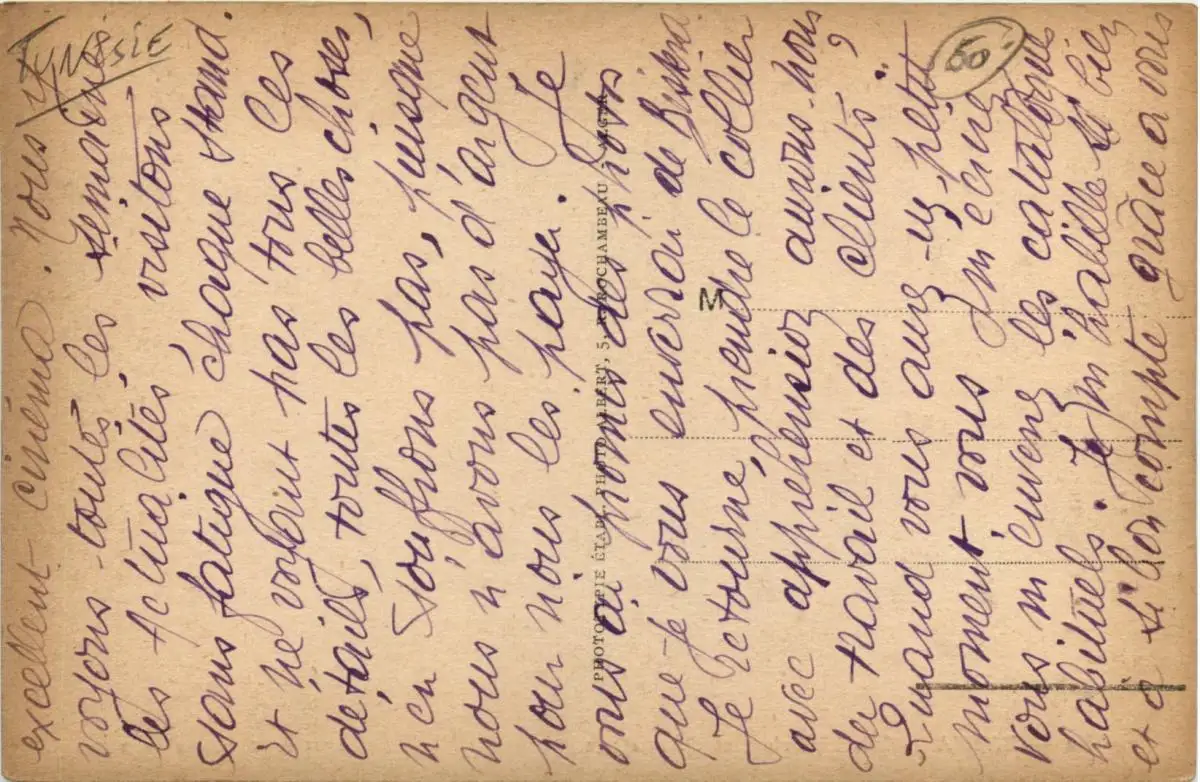 TUNISIE
50
excellent cinéma. Nous y
voyons toutes les semaines
les actualités, visitons
sans fatigue chaque stand.
Et ne voyant pas tous les
détails, toutes les belles choses,
n'en souffrons pas, puisque
nous n'avons pas d'argent
pour nous les payer. Je
vous ai promis des photos
que je vous enverrai de Biskra.
Je retourne, prendre le collier
avec appréhension aurons-nous
du travail et des clients?
Quand vous aurez un petit
moment vous
vous les catalogues
habituels. Je m'habille si bien
et à si bon compte grâce à vous
PHOTOTYPIE ÉTABL. PHOTO ALBERT, 5, ROCHAMBEAU
M